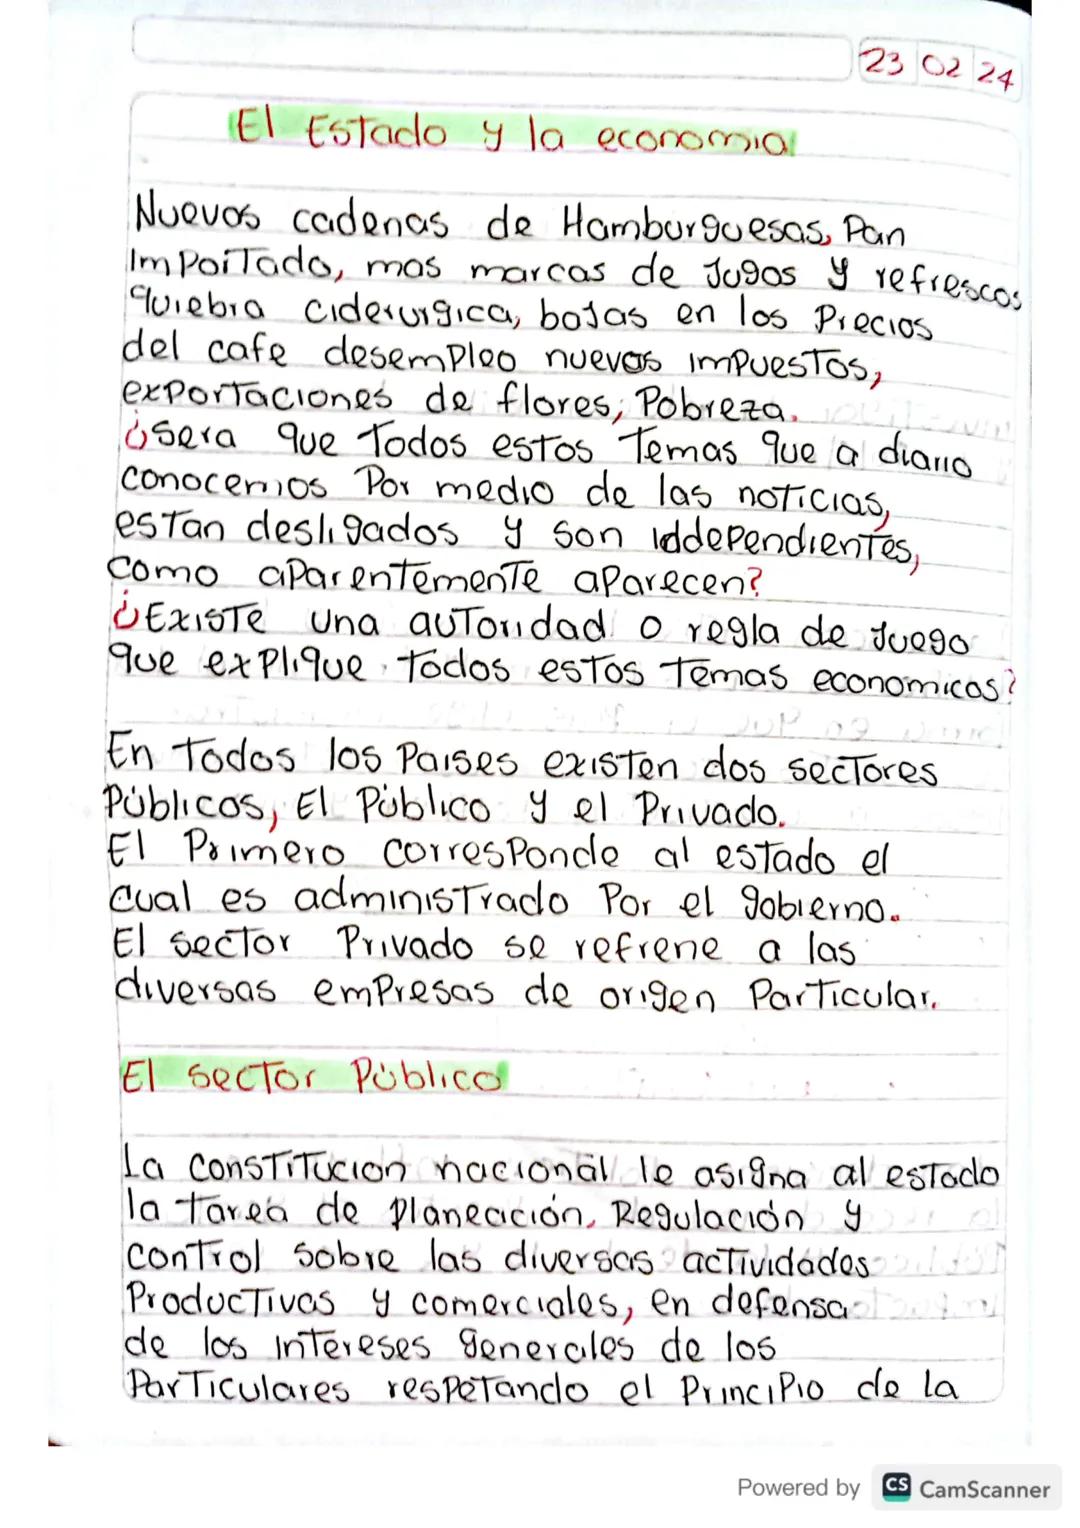 23 02 24
El Estado y la economia
Nuevas cadenas de Hamburguesas, Pan
Importado, mas marcas de Jugos y refrescos
quiebra ciderurgica, bajas en los Precios
del cafe desempleo nuevos impuestos,
exportaciones de flores, Pobreza.
¿Sera que Todos estos Temas que a diario
conocemos Por medio de las noticias,
estan desligados y son iddependientes,
como aparentemente aparecen?
¿Existe una autoridad o regla de Juego
que explique todos estos Temas economicos?
En Todos los Paises existen dos sectores
Públicos, El Público y el Privado.
El Primero corresponde al estado el
cual es administrado Por el gobierno.
El sector Privado se refrene a las
diversas empresas de origen Particular.
El sector Público
La constitucion nacional le asigna al estado
la tarea de planeación, Regulación y
control sobre las diversas actividades
Productivas y comerciales, en defensa
de los intereses generales de los
Particulares respetando el Principio de la
Powered by CS CamScanner